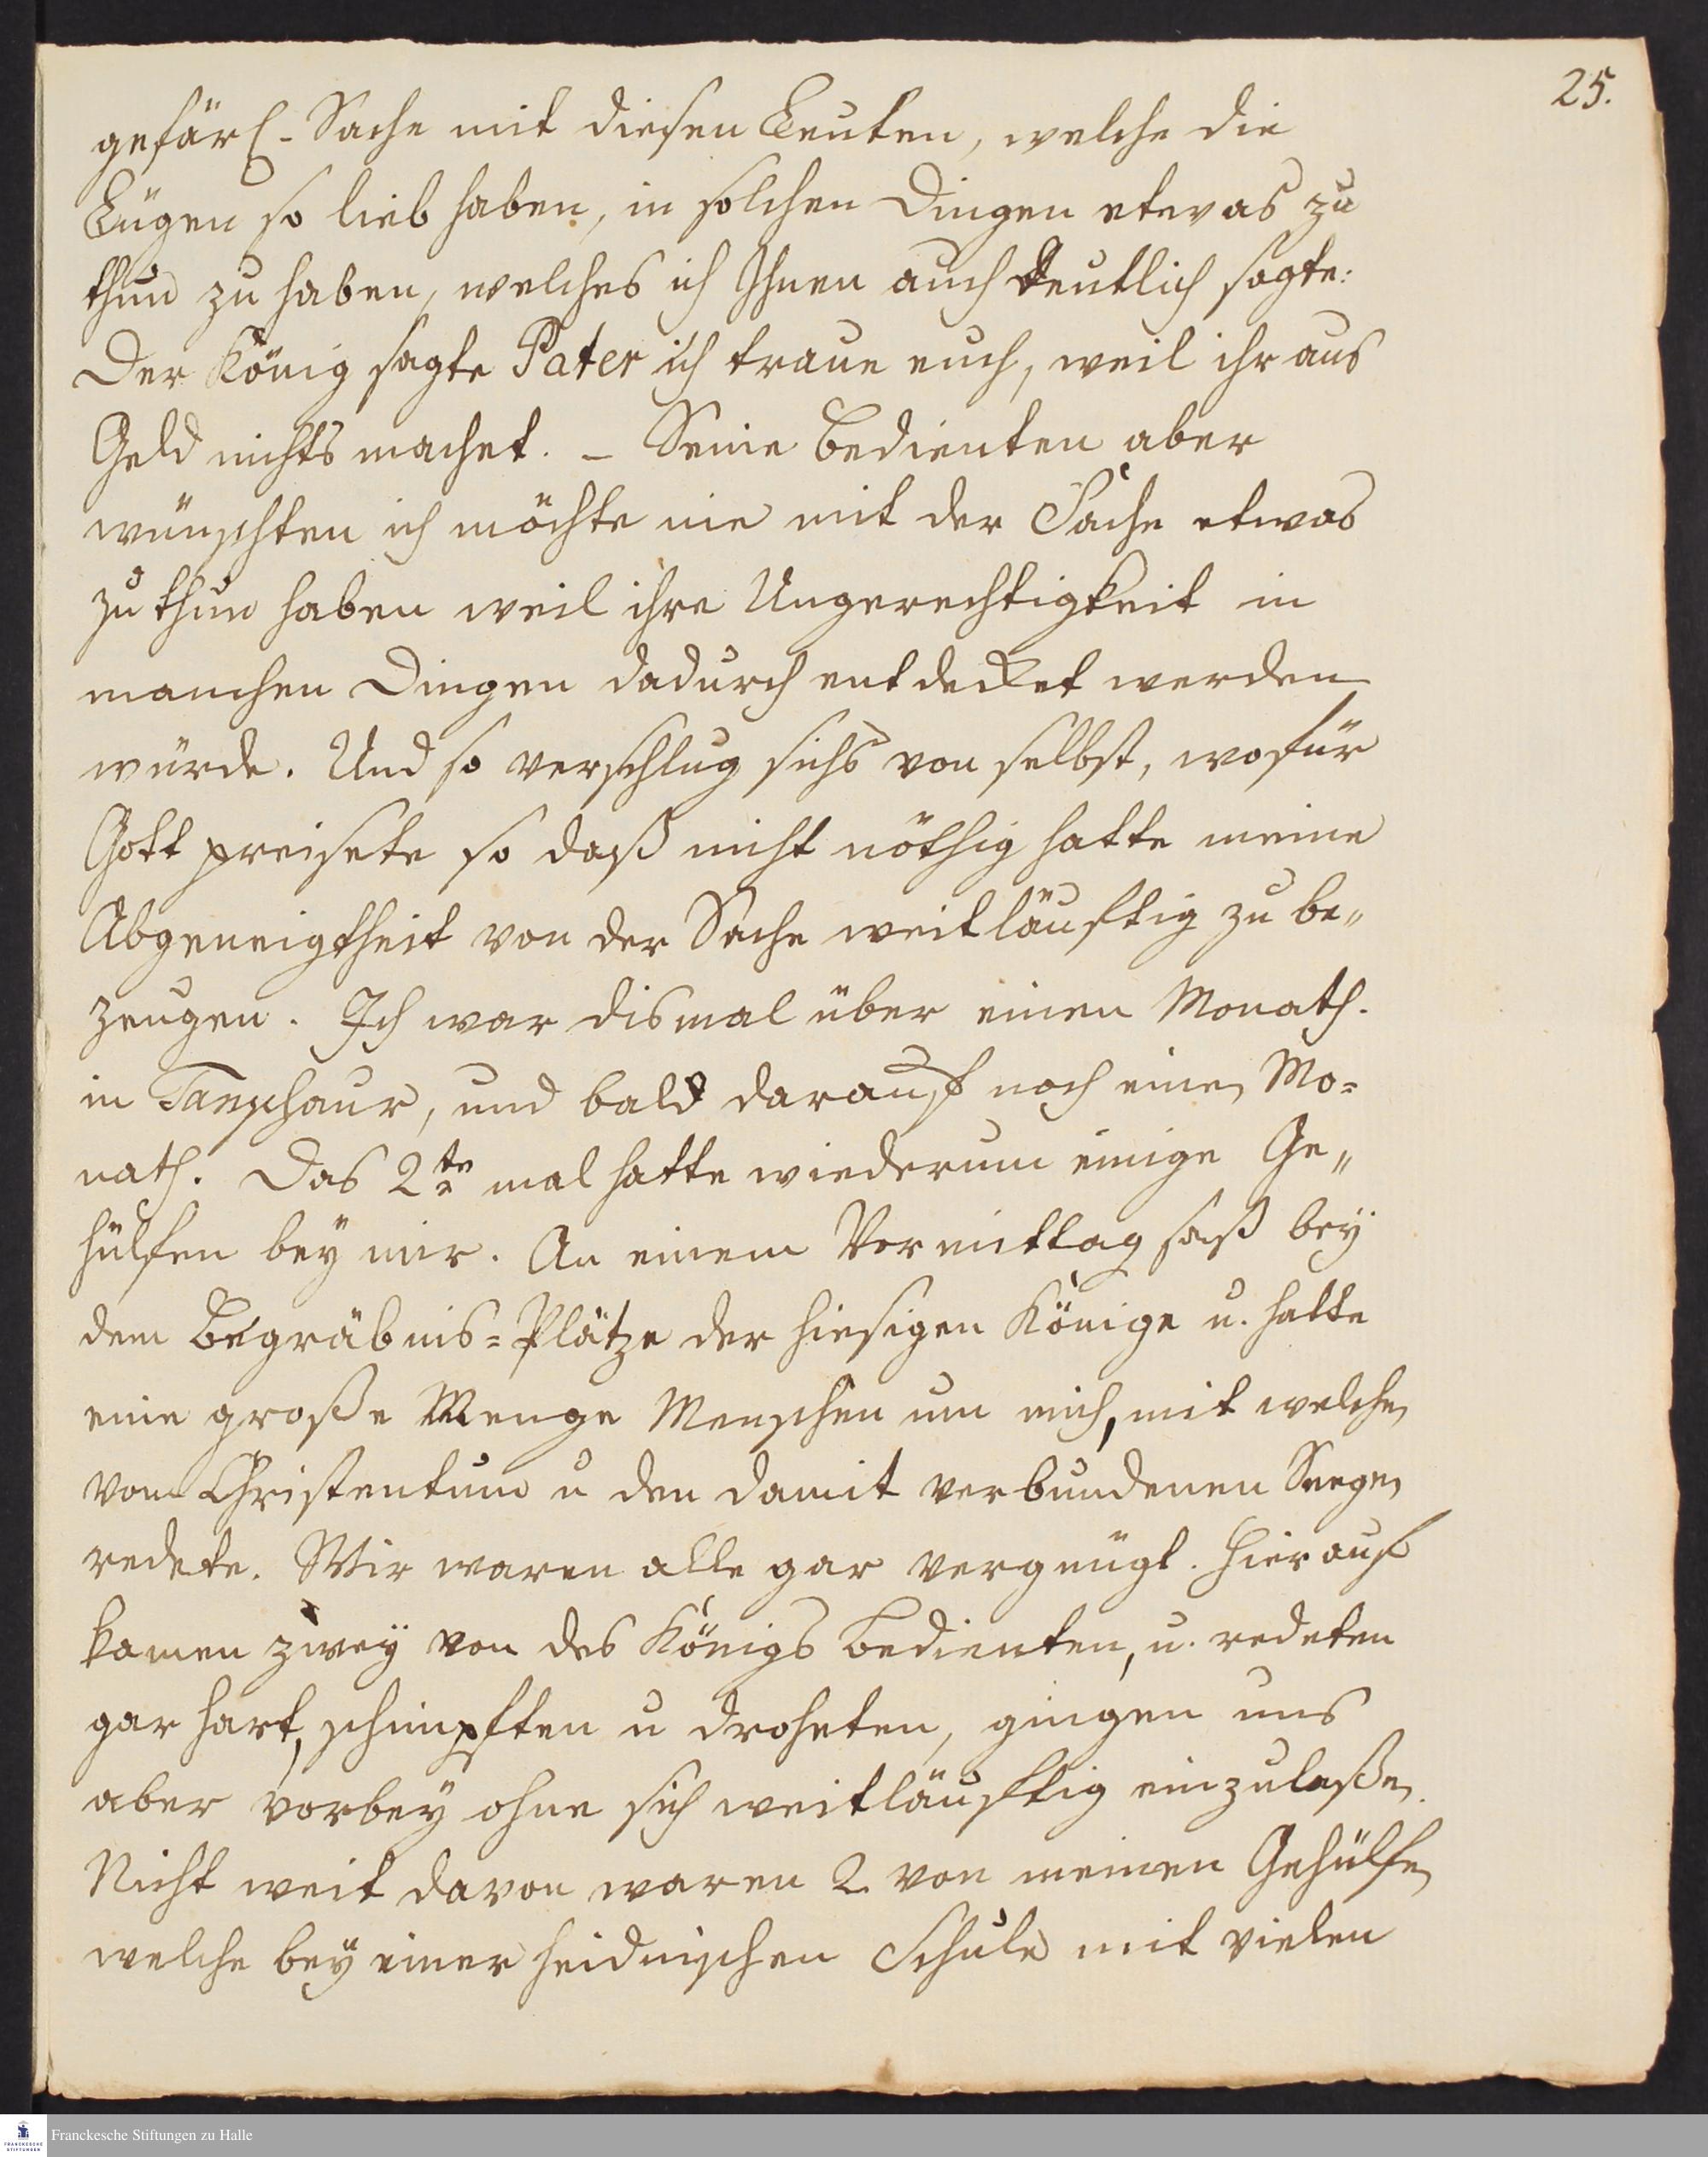 25.
gefärl. Sache mit diesen Leuten, welche die
Lügen so lieb haben, in solchen Dingen etwas zu
thun zu haben, welches ich Ihnen auch deutlich sagte:
Der König sagte Pater ich traue euch, weil ihr aus
Geld nichts machet. – Seine Bedienten aber
wünschten ich möchte nie mit der Sache etwas
zu thun haben weil ihre Ungerechtigkeit in
manchen Dingen dadurch entdecket werden
würde. Und so verschlug sichs von selbst, wofür
Gott preisete so daß nicht nöthig hatte meine
Abgeneigtheit von der Sache weitläuftig zu be„
zeugen. Ich war dismal über einen Monath.
in Tanschaur, und bald darauf noch einen Mo=
nath. Das 2te mal hatte wiederum einige Ge„
hülfen bey mir. An einem Vormittag saß bey
dem Begräbnis=Plätze der hiesigen Könige u. hatte
eine große Menge Menschen um mich, mit welchen
vom Christentum u den damit verbundenen Seegen
redete. Wir waren alle gar vergnügt. Hierauf
kamen zwey von des Königs Bedienten, u. redeten
gar hart, schimpften u droheten, gingen uns
aber vorbey ohne sich weitläuftig einzulaßen.
Nicht weit davon waren 2 von meinen Gehülfen
welche bey einer heidnischen Schule mit vielen
FRANCKESCHE STIFTUNGEN
Franckesche Stiftungen zu Halle